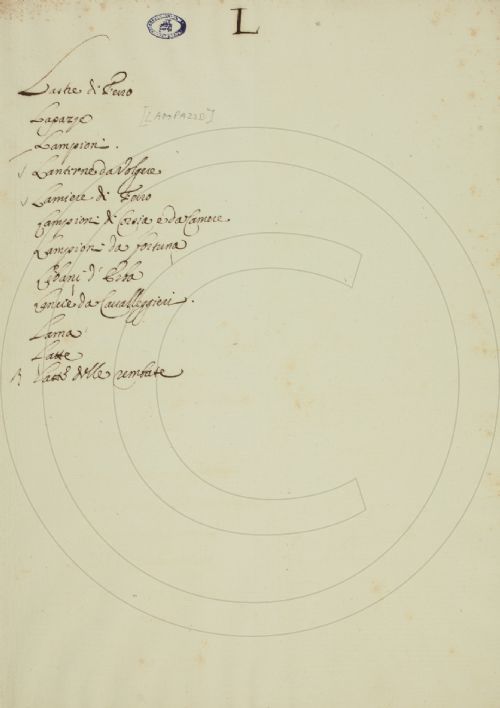 L
Lastre di Ferro
Lapazze [LAMPAZZE]
Lampioni.
Lanterne da Volgere
Lamiere di Ferro
Lampioni di Corsia e da Camere
Lampioni da fortuna
di
Lancie da Cavalleggieri.
Lama
Latte
delle rembate